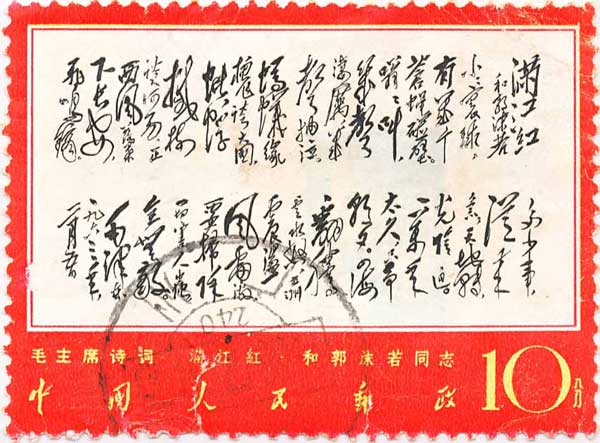 滿江红
和郭沫若
小小寰球
有幾个
蒼蝇碰壁
嗡嗡叫
幾声
凄厉幾
声抽泣
螞蟻缘
槐誇大國
蚍蜉
撼树
谈何易 正
西風落葉
下长安
飞鸣镝
多少事
從来
急 天地转
光陰迫
一萬年
太久 只争
朝夕 四海
翻腾
雲水怒 五洲
震盪
風雷激
要掃除
一切害人虫
全無敵
毛泽东
一九六三年
二月五日
毛主席诗词 满江红·和郭沫若同志
中國人民郵政 10分
240